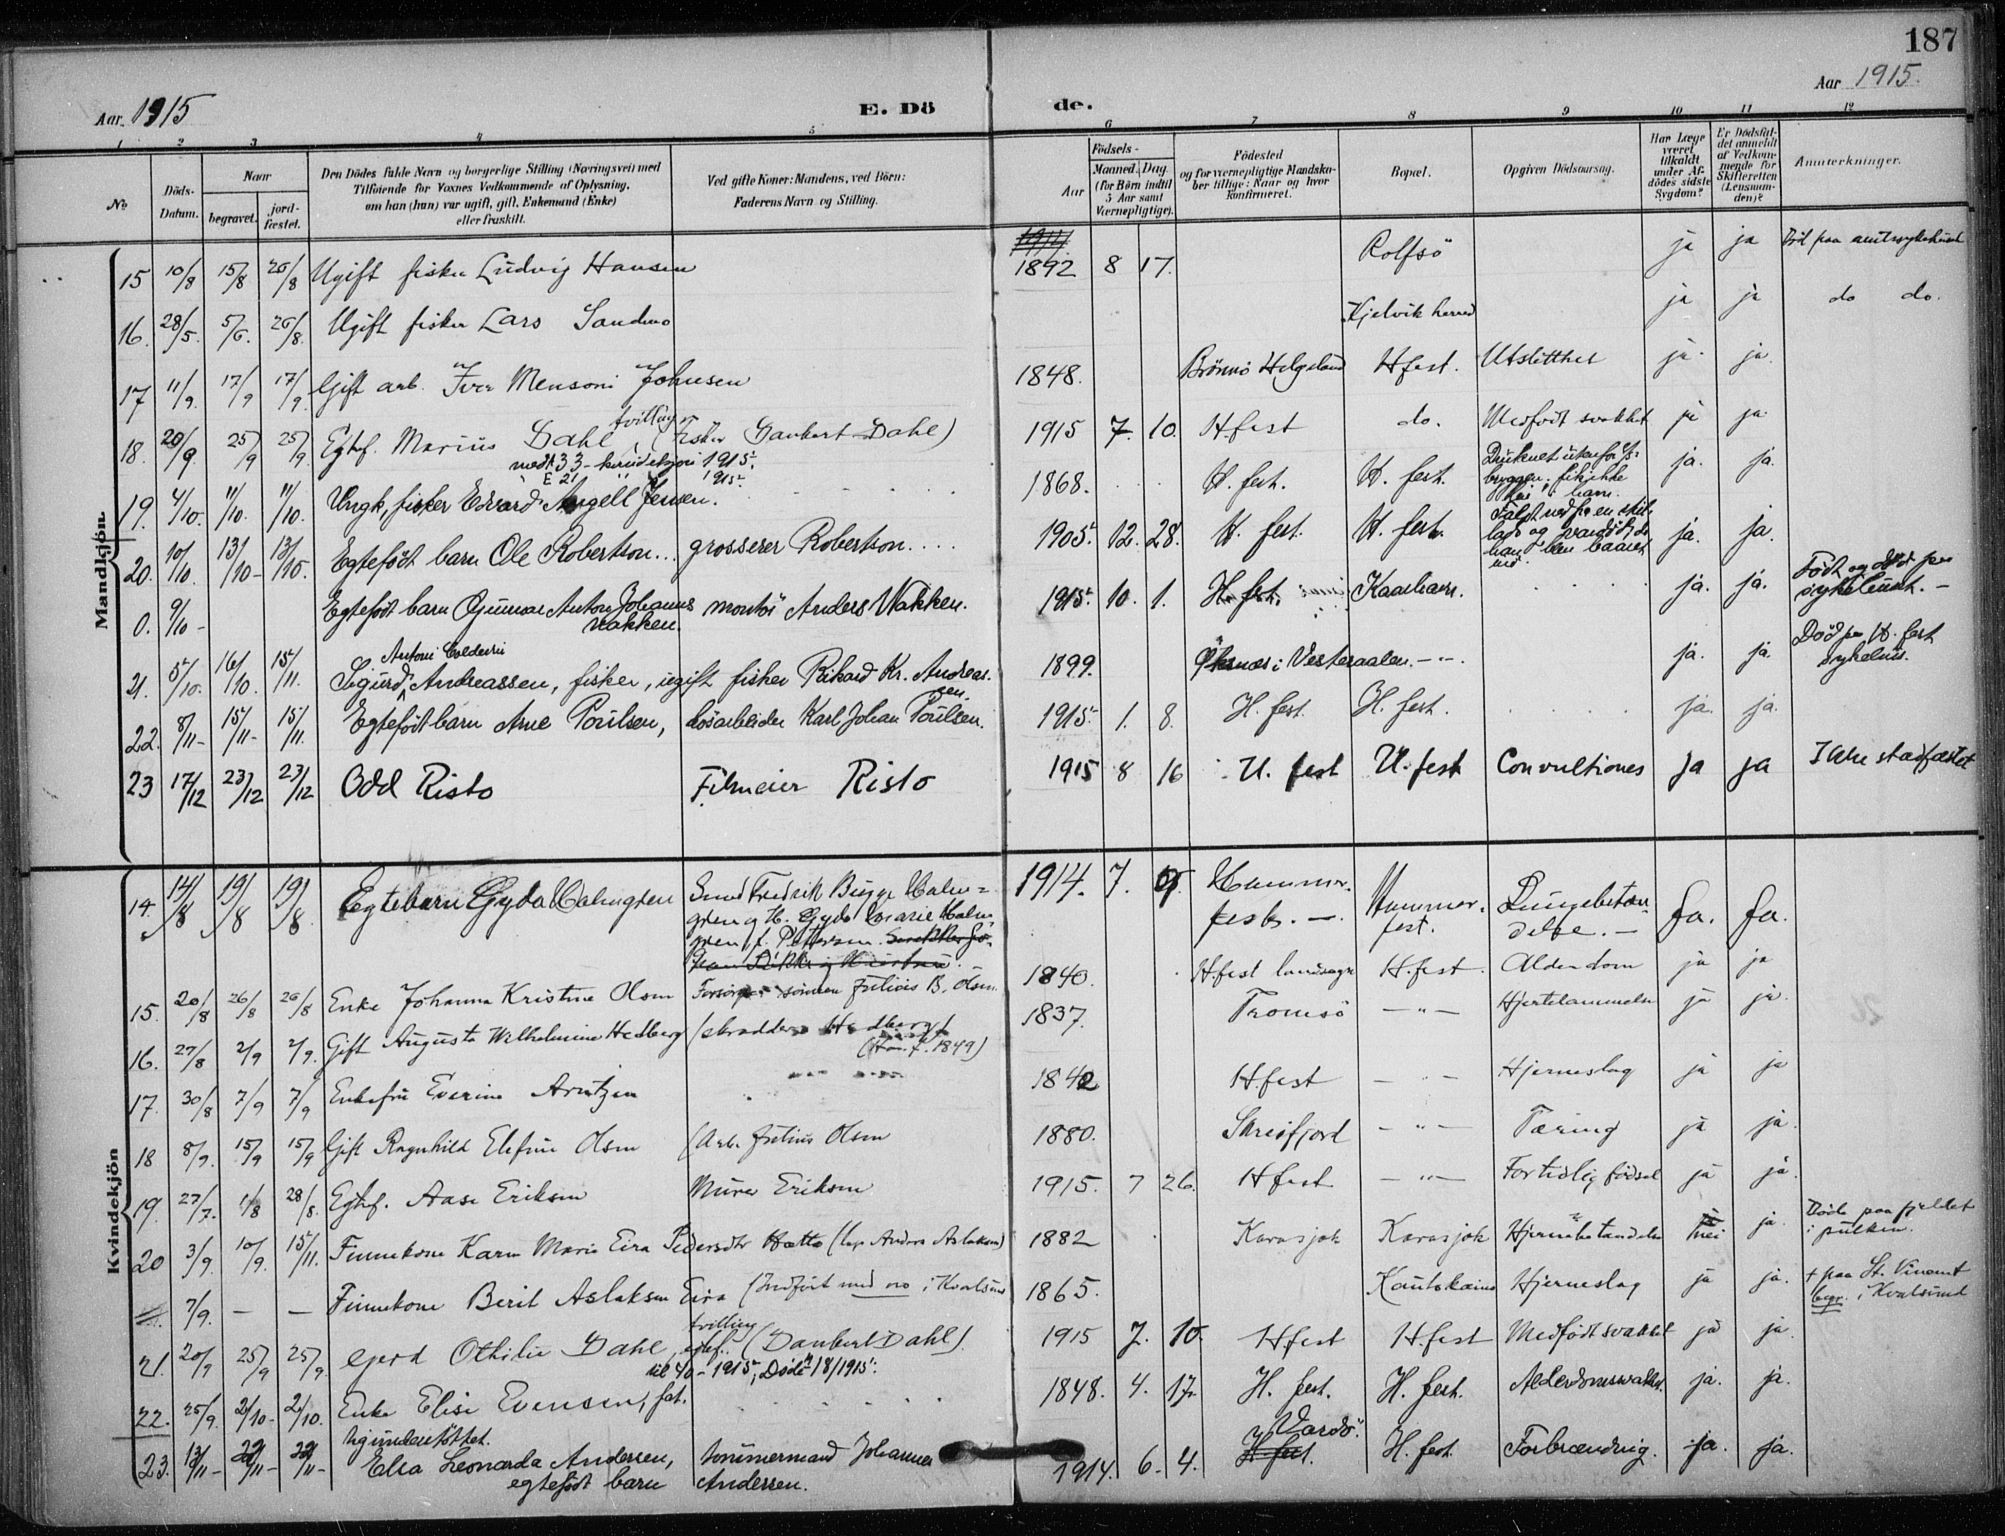 187
Aar 1915
Aar 1915.
E. Dö de.
1 2 3 4 5 6 7 8 9 10 11 12
№
Döds-Datum.
Naar
begravet.
jord-fæstet.
Den Dödes fulde Navn og borgerlige Stilling (Næringsvei) med
Tilföiende for Voxnes Vedkommende af Oplysning,
om han (hun) var ugift, gift, Enkemand (Enke)
eller fraskilt.
Ved gifte Koner: Mandens, ved Börn:
Faderens Navn og Stilling.
Födsels-
Aar
Maaned. Dag
(for Börn indtil
5 Aar samt
Værnepligtige).
Födested
og for værnepligtige Mandska-
ber tillige: Naar og hvor
konfirmeret.
Bopæl.
Opgiven Dödsaarsag.
Har Læge
været
tilkaldt
under Af-
dödes sidste
Sygdom?
Er Dödsfal-
det anmeldt
af Vedkom-
mende for
Skifteretten
(Lensman-
den)?
Anmerkninger.
Mandkjön.
15 10/8 15/8 26/8 Ugift fisker Ludvig Hansen 1892 8 17. Rolfsö ja ja Död paa amtssykehuset
16. 28/5. 5/6. 26/8. Ugift fisker Lars Sandmo Kjelvik herred ja ja do do.
17 11/9. 17/9 17/9. Gift arb. Iver Mensoni Johnsen 1848. Brönnö Helgeland Hfest. Utslitthet ja. ja.
18. 20/9. 25/9 25/9. Egtef. Marius Dahl, tvilling (Fisker Daubert Dahl) 1915 7. 10. Hfest do. Medfödt svakhet ja ja.
1915.
1915.
19. 4/10. 11/10. 11/10. Ungk, fisker Edvard Angell Jensen. 1868. H. fest. H. fest. Druknet utenfor
bryggen, fik ikke
ja. ja.
20. 10/10. 13/10- 13/10. Egtefödt barn Ole Robertson... grosserer Robertson.... 1905. 12. 28. H. fest. H. fest. ja. ja.
0. 9/10- Egtefödt barn Gunnar Anton Johannes
Nakken.
montör Anders Nakken. 1915. 10. 1. H. fest. Kaarhavn. ja. ja. Födt og död paa
sykehuset.-
21. 5/10. 16/10. 15/11. Sigurd Andreassen, fisker, ugift fisker Rikard Kr. Andreas-
sen.
1899. Öksnes i Vesteraalen. -"- ja. ja. Död paa H. fest
sykehus.
22. 8/11- 15/11- 15/11. Egtefödt barn Arne Poulsen, lösarbeider Karl Johan Poulsen. 1915. 1. 8. H. fest. H. fest. ja. ja.
23 17/12 23/12 23/12 Odd Risto Filmeier Risto 1915 8 16 H. fest H. fest Convultiones ja ja Ikke stadfæstet
Kvindekjön
14. 14/8 19/8 19/8. Egtebarn Gyda Malmgren Smed Fredrik Bugge Malm=
gren og H. Gyda Marie Malm-
gren f. Pettersen.
1914. 7. 9. Hammer-
fest. -
Hammer-
fest.
Lungebetæn-
delse. -
Ja. Ja.
15. 20/8 26/8 26/8 Enke Johanna Kristine Olsen Forsörger sönnen Julius B. Olsen. 1840. Hfest landsogn H.fest. Alderdom ja ja
16. 27/8 2/9 2/9. Gift Augusta Wilhelmine Hedberg (skrædder Hedberg)
1849)
1837. Tromsö -"- Hjertelammelse ja ja.
17. 30/8 7/9 7/9 Enkefru Everine Arntzen 1842 Hfest - " - Hjerneslag ja ja
18 8/9. 15/9 15/9 Gift Ragnhild Elefine Olsen (Arb. Julius Olsen 1880. Skreifjord -"- Tæring ja ja.
19. 27/7. 1/8 28/8. Egtef. Aase Eriksen Murer Eriksen 1915. 7 26. Hfest -"- For tidlig födsel ja ja.
20 3/9. 10/9. 15/11. Finnekone Karen Marie Eira Pedersdtr Hætta (lap Anders Aslaksen) 1882 Karasjok Karasjok Hjernebetændelse nei ja. Döde paa fjeldet
i pulken.
7/9. - - Finnekone Berit Aslaksen Eira (Indfört med no i Kvalsund 1865. Kautokeino Hjerneslag ja ja. + paa St. Vincent
begr. i Kvalsund
21. 20/9 25/9 25/9 Gerd Othilie Dahl, tvilling egtef. (Daubert Dahl). 1915 7. 10. Hfest H.fest Medfödt svakhet ja ja.
22. 25/9. 2/10- 2/10. Enke Elise Evensen, fat.
tigunderstöttet.
1848. 4. 17. H. fest. H. fest. Alderdomssvakhet. ja. ja.
23. 13/11- 22/11- 22/11- Elsa Leonarda Andersen,
egtefödt barn
tömmermand Johannes
Andersen.
1914. 6. 4. Vardö.
H. fest.
H. fest. Forbrænding. ja. ja.